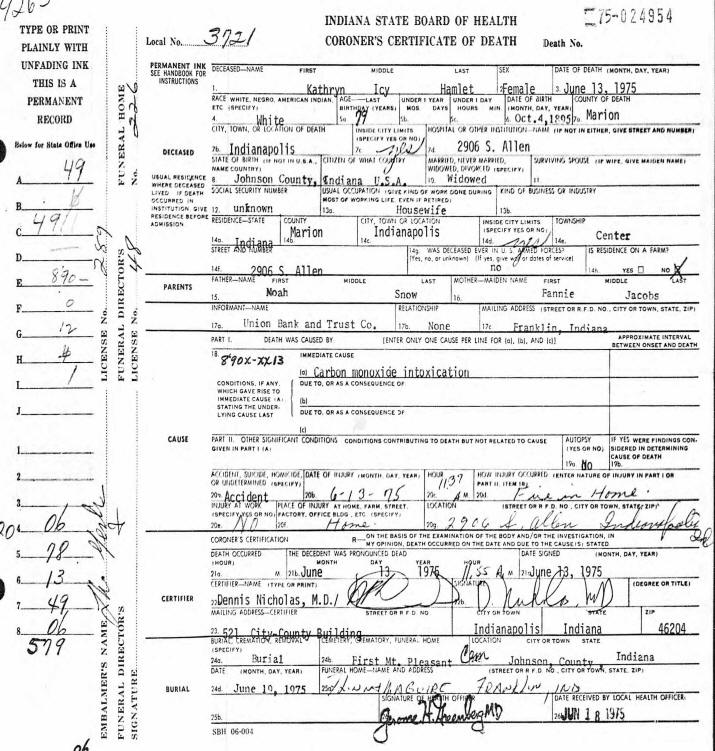 INDIANA STATE BOARD OF HEALTH
CORONER'S CERTIFICATE OF DEATH
75-024954
Local No. 3721
Death No.
TYPE OR PRINT
PLAINLY WITH
UNFADING INK
THIS IS A
PERMANENT
RECORD
Below for State Office Use
A 49
B
C 49
D
E 890-
F 0
G 12
H 4
I 1
J
1
2
3
4 06
5 78
6 13
7 49
8 06
579
FUNERAL HOME No. 226
LICENSE No. 289
FUNERAL DIRECTOR'S LICENSE No. 48
EMBALMER'S NAME
FUNERAL DIRECTOR'S SIGNATURE
PERMANENT INK
SEE HANDBOOK FOR
INSTRUCTIONS
DECEASED—NAME FIRST MIDDLE LAST SEX DATE OF DEATH (MONTH, DAY, YEAR)
1. Kathryn Icy Hamlet 2. Female 3. June 13, 1975
RACE WHITE, NEGRO, AMERICAN INDIAN, ETC (SPECIFY) AGE—LAST BIRTHDAY (YEARS) UNDER 1 YEAR MOS. DAYS UNDER 1 DAY HOURS MIN. DATE OF BIRTH (MONTH, DAY, YEAR) COUNTY OF DEATH
4. White 5a. 79 5b. 5c. 6. Oct.4,1895 7a. Marion
CITY, TOWN, OR LOCATION OF DEATH INSIDE CITY LIMITS (SPECIFY YES OR NO) HOSPITAL OR OTHER INSTITUTION—NAME (IF NOT IN EITHER, GIVE STREET AND NUMBER)
7b. Indianapolis 7c. yes 7d. 2906 S. Allen
DECEASED
STATE OF BIRTH (IF NOT IN U.S.A., NAME COUNTRY) CITIZEN OF WHAT COUNTRY MARRIED, NEVER MARRIED, WIDOWED, DIVORCED (SPECIFY) SURVIVING SPOUSE (IF WIFE, GIVE MAIDEN NAME)
8. Johnson County, Indiana U.S.A. 10. Widowed 11.
USUAL RESIDENCE
WHERE DECEASED
LIVED. IF DEATH
OCCURRED IN
INSTITUTION, GIVE
RESIDENCE BEFORE
ADMISSION
SOCIAL SECURITY NUMBER USUAL OCCUPATION (GIVE KIND OF WORK DONE DURING MOST OF WORKING LIFE, EVEN IF RETIRED) KIND OF BUSINESS OR INDUSTRY
12. unknown 13a. Housewife 13b.
RESIDENCE—STATE COUNTY CITY, TOWN OR LOCATION INSIDE CITY LIMITS (SPECIFY YES OR NO) TOWNSHIP
14a. Indiana 14b. Marion 14c. Indianapolis 14d. yes 14e. Center
STREET AND NUMBER 14g. WAS DECEASED EVER IN U.S. ARMED FORCES? (Yes, no, or unknown) (If yes, give war or dates of service) IS RESIDENCE ON A FARM?
14f. 2906 S. Allen no 14h. YES NO X
PARENTS
FATHER—NAME FIRST MIDDLE LAST MOTHER—MAIDEN NAME FIRST MIDDLE LAST
15. Noah Snow 16. Fannie Jacobs
INFORMANT—NAME RELATIONSHIP MAILING ADDRESS (STREET OR R.F.D. NO., CITY OR TOWN, STATE, ZIP)
17a. Union Bank and Trust Co. 17b. None 17c. Franklin, Indiana
PART I. DEATH WAS CAUSED BY [ENTER ONLY ONE CAUSE PER LINE FOR (a), (b), AND (c)] APPROXIMATE INTERVAL BETWEEN ONSET AND DEATH
18. 890X-XX13 IMMEDIATE CAUSE
(a) Carbon monoxide intoxication
CONDITIONS, IF ANY, WHICH GAVE RISE TO IMMEDIATE CAUSE (A) STATING THE UNDERLYING CAUSE LAST
DUE TO, OR AS A CONSEQUENCE OF
(b)
DUE TO, OR AS A CONSEQUENCE OF
(c)
CAUSE
PART II. OTHER SIGNIFICANT CONDITIONS CONDITIONS CONTRIBUTING TO DEATH BUT NOT RELATED TO CAUSE GIVEN IN PART I (A) AUTOPSY (YES OR NO) IF YES WERE FINDINGS CONSIDERED IN DETERMINING CAUSE OF DEATH
19a. No 19b.
ACCIDENT, SUICIDE, HOMICIDE, OR UNDETERMINED (SPECIFY) DATE OF INJURY (MONTH, DAY, YEAR) HOUR HOW INJURY OCCURRED (ENTER NATURE OF INJURY IN PART I OR PART II, ITEM 18)
20a. Accident 20b. 6-13-75 20c. 1137 A M 20d. Fire in Home.
INJURY AT WORK (SPECIFY YES OR NO) PLACE OF INJURY AT HOME, FARM, STREET, FACTORY, OFFICE BLDG., ETC. (SPECIFY) LOCATION (STREET OR R.F.D. NO., CITY OR TOWN, STATE, ZIP)
20e. NO 20f. Home. 20g. 2906 S. Allen Indianapolis Ind
CORONER'S CERTIFICATION ON THE BASIS OF THE EXAMINATION OF THE BODY AND/OR THE INVESTIGATION, IN MY OPINION, DEATH OCCURRED ON THE DATE AND DUE TO THE CAUSE(S) STATED
DEATH OCCURRED (HOUR) THE DECEDENT WAS PRONOUNCED DEAD MONTH DAY YEAR HOUR DATE SIGNED (MONTH, DAY, YEAR)
21a. M 21b. June 13 1975 11.55 A M 21d. June 13, 1975
CERTIFIER
CERTIFIER—NAME (TYPE OR PRINT) SIGNATURE (DEGREE OR TITLE)
22. Dennis Nicholas, M.D./
MAILING ADDRESS—CERTIFIER STREET OR R.F.D. NO. CITY OR TOWN STATE ZIP
23. 521 City-County Building Indianapolis Indiana 46204
BURIAL, CREMATION, REMOVAL (SPECIFY) CEMETERY, CREMATORY, FUNERAL HOME LOCATION CITY OR TOWN STATE
24a. Burial 24b. First Mt. Pleasant Cem Johnson, County Indiana
BURIAL
DATE (MONTH, DAY, YEAR) FUNERAL HOME—NAME AND ADDRESS (STREET OR R.F.D. NO., CITY OR TOWN, STATE, ZIP)
24d. June 19, 1975 MAGUIRE FRANKLIN, IND
SIGNATURE OF HEALTH OFFICER DATE RECEIVED BY LOCAL HEALTH OFFICER.
25b. Jerome H. Greenberg MD JUN 18 1975
SBH 06-004